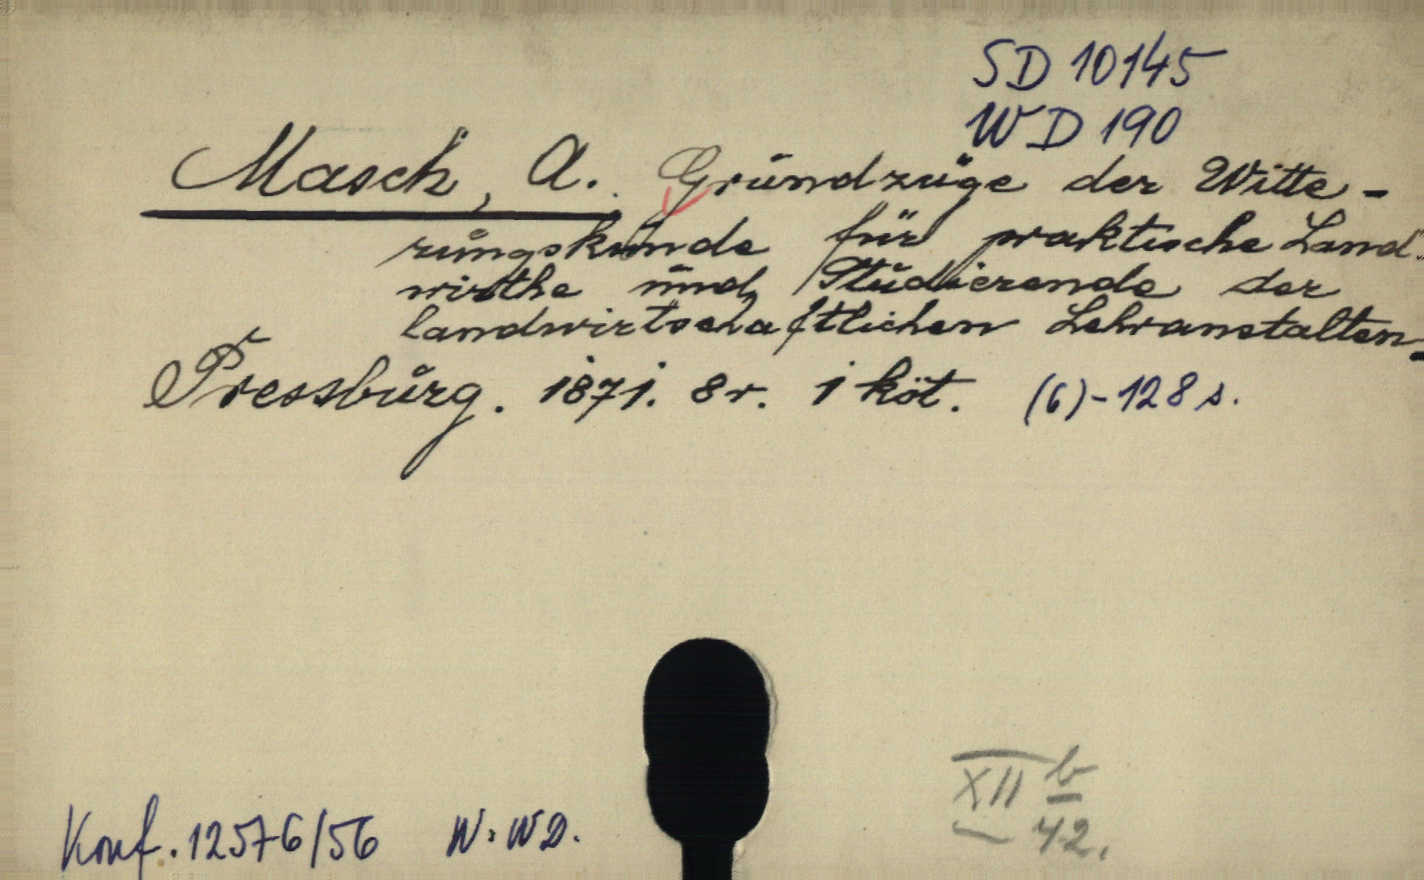 SD 10145
WD 190
Masch, A. Grundzüge der Witte-
rungskunde für praktische Land-
wirthe und Studierende der
landwirtschaftlichen Lehranstalten.
Pressburg. 1871. 8r. 1 köt. (6)-128 s.
XII b
42.
Konf. 12576/56 N: WD.